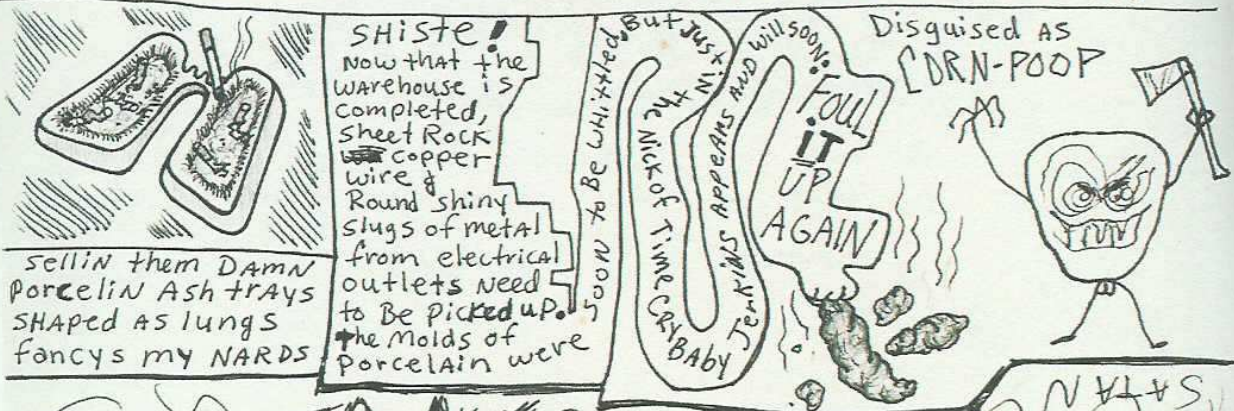 sellin them DAMN
Porcelin Ash trays
SHAPED AS lungs
fancys my NARDS
SHiste!
Now that the
warehouse is
completed,
Sheet Rock
copper
wire &
Round shiny
slugs of metal
from electrical
outlets Need
to Be Picked up.
the Molds of
Porcelain were
Soon to Be whittled, But Just in the Nick of Time CRY BABY
Jerkins Appears AND will soon:
FOUL
IT
UP
AGAIN
Disguised AS
CORN-POOP
SATAN